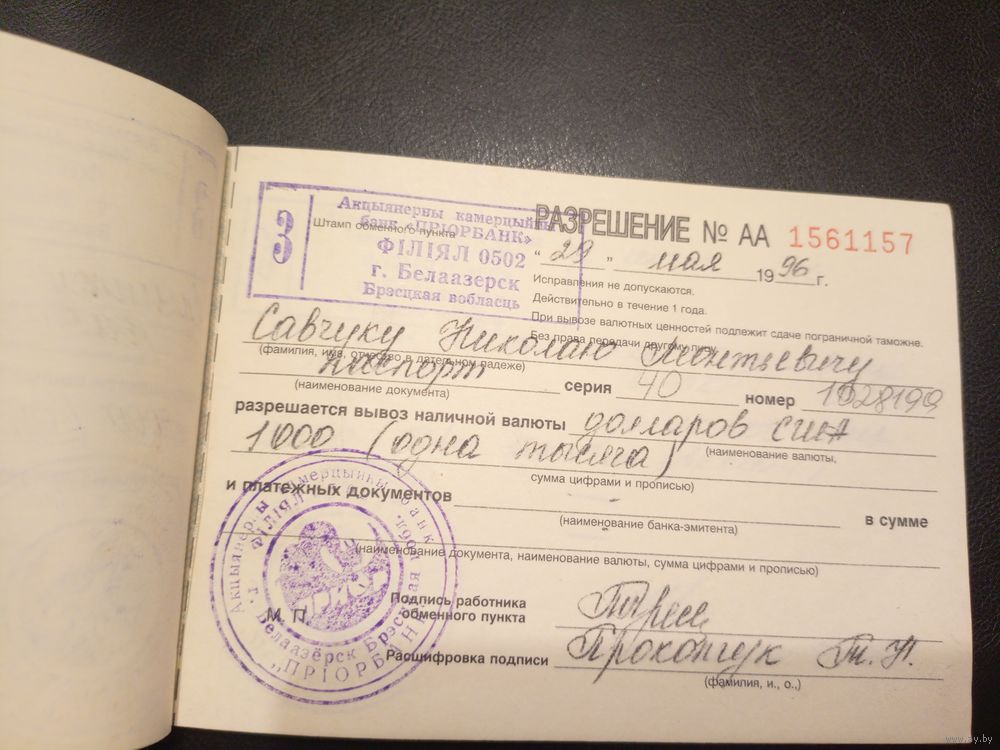 3
Акцыянерны камерцыйны
банк «ПРІОРБАНК»
Штамп обменного пункта
ФІЛІЯЛ 0502
г. Белаазерск
Брэсцкая вобласць
РАЗРЕШЕНИЕ № АА 1561157
“ 29 ” мая 1996 г.
Исправления не допускаются.
Действительно в течение 1 года.
При вывозе валютных ценностей подлежит сдаче пограничной таможне.
Без права передачи другому лицу.
Савчуку Николаю Леонтьевичу
(фамилия, имя, отчество в дательном падеже)
паспорт серия 40 номер 1028199
(наименование документа)
разрешается вывоз наличной валюты долларов сша
(наименование валюты,
1000 (одна тысяча)
сумма цифрами и прописью)
и платежных документов в сумме
(наименование банка-эмитента)
(наименование документа, наименование валюты, сумма цифрами и прописью)
М. П.
Подпись работника
обменного пункта
Расшифровка подписи Т.Н.
(фамилия, и., о.,)
Акцыянерны камерцыйны банк
„ПРІОРБАНК
ФІЛІЯЛ
г. Белаазёрск Брэсцкая вобл.
www.ay.by